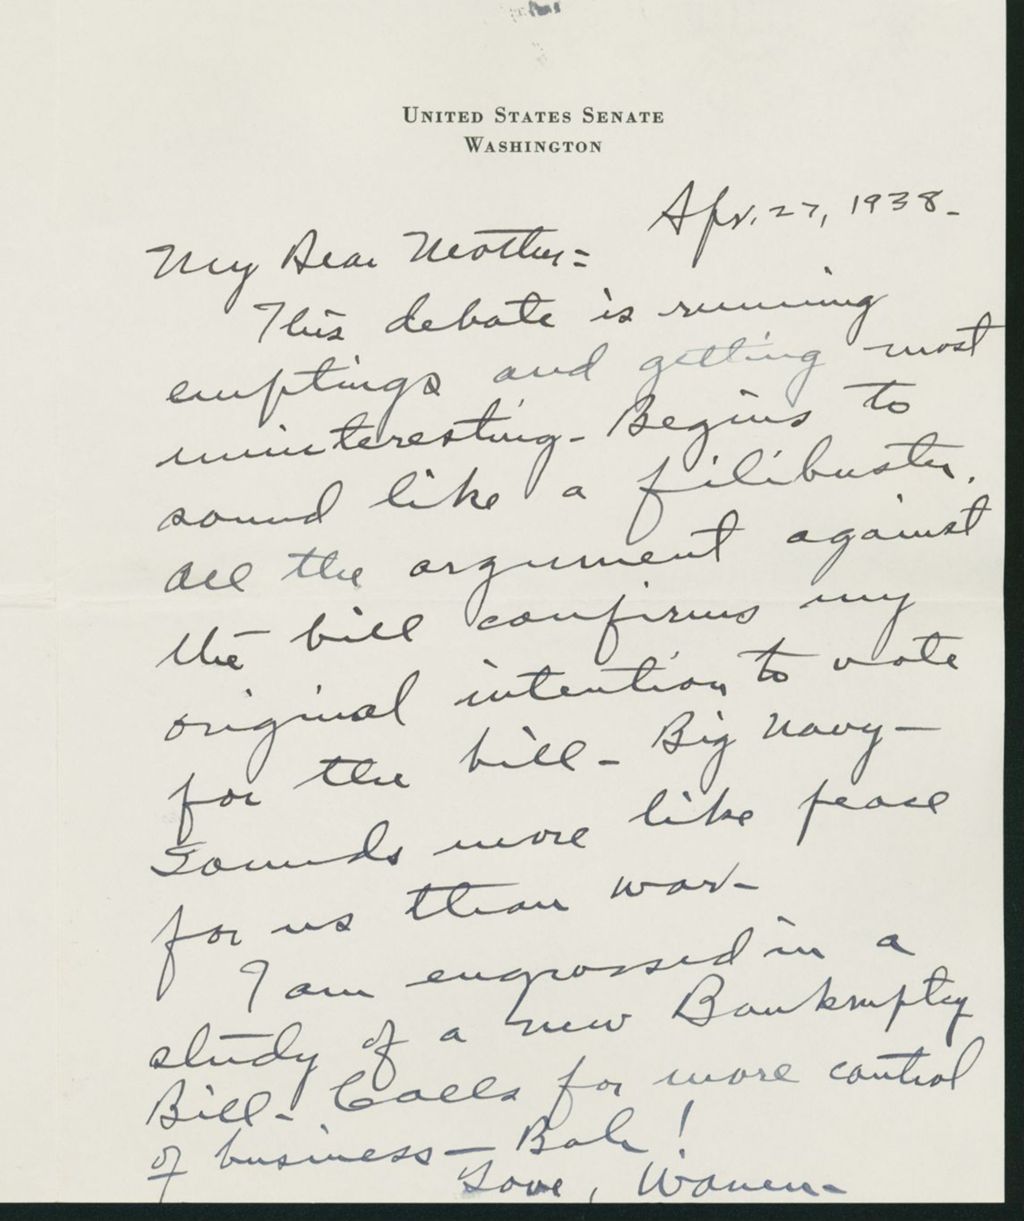 UNITED STATES SENATE
WASHINGTON
Apr. 27, 1938-
My Dear Mother=
This debate is running
emptings and getting most
uninteresting- Begins to
sound like a filibuster.
All the argument against
the bill confirms my
original intention to vote
for the bill- Big Navy-
Sounds more like peace
for us than war-
I am engrossed in a
study of a new Bankruptcy
Bill- Calls for more control
of business- Bah!
Love, Warren-